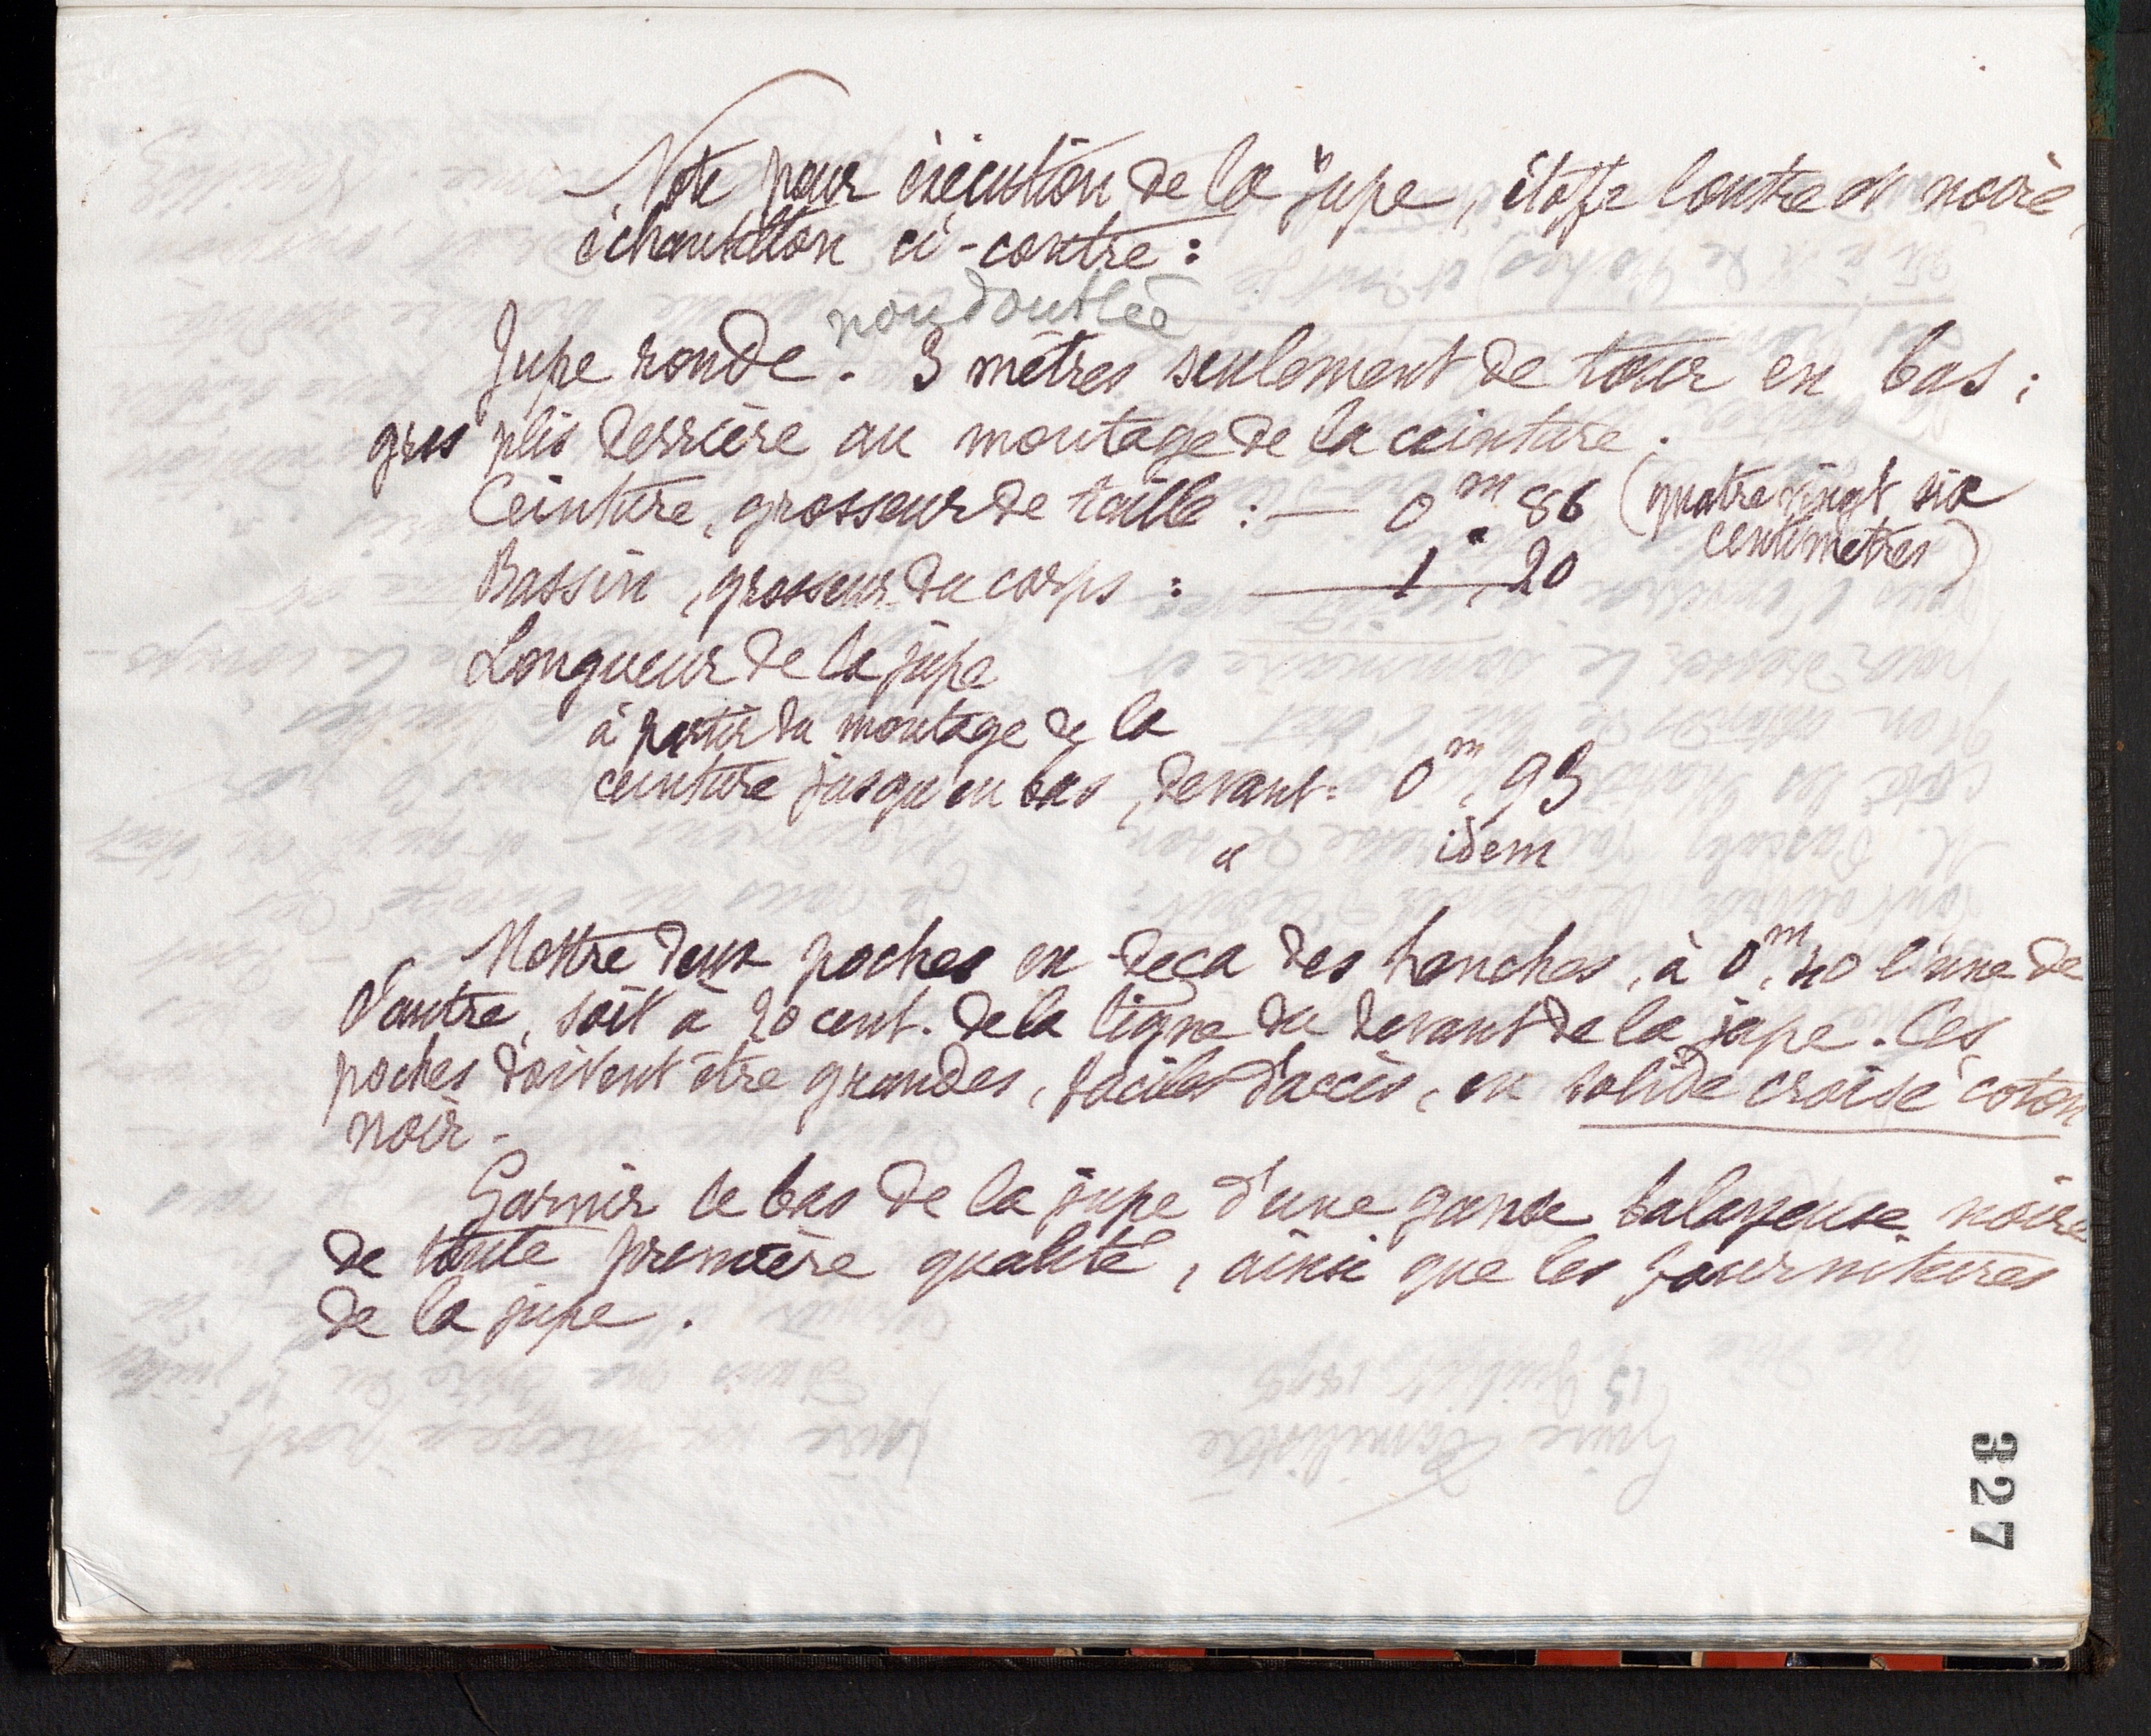 Note pour exécution de la jupe, étoffe loutre et noire,
échantillon ci-contre :
non doublée
Jupe ronde. 3 mètres seulement de tour en bas ;
gros plis derrière au montage de la ceinture.
Ceinture, grosseur de taille : — 0m. 86 (quatre vingt six
centimètres)
Bassin, grosseur du corps : — 1, 20
Longueur de la jupe
à partir du montage de la
ceinture jusqu'en bas, devant : 0m, 93
" idem
Mettre deux poches en deça des hanches, à 0m,40 l'une de
l'autre, soit à 20 cent. de la ligne du devant de la jupe. Ces
poches doivent être grandes, faciles d'accès, en solide croisé coton
noir.
Garnir le bas de la jupe d'une ganse balayeuse noire
de toute première qualité, ainsi que les fournitures
de la jupe.
327